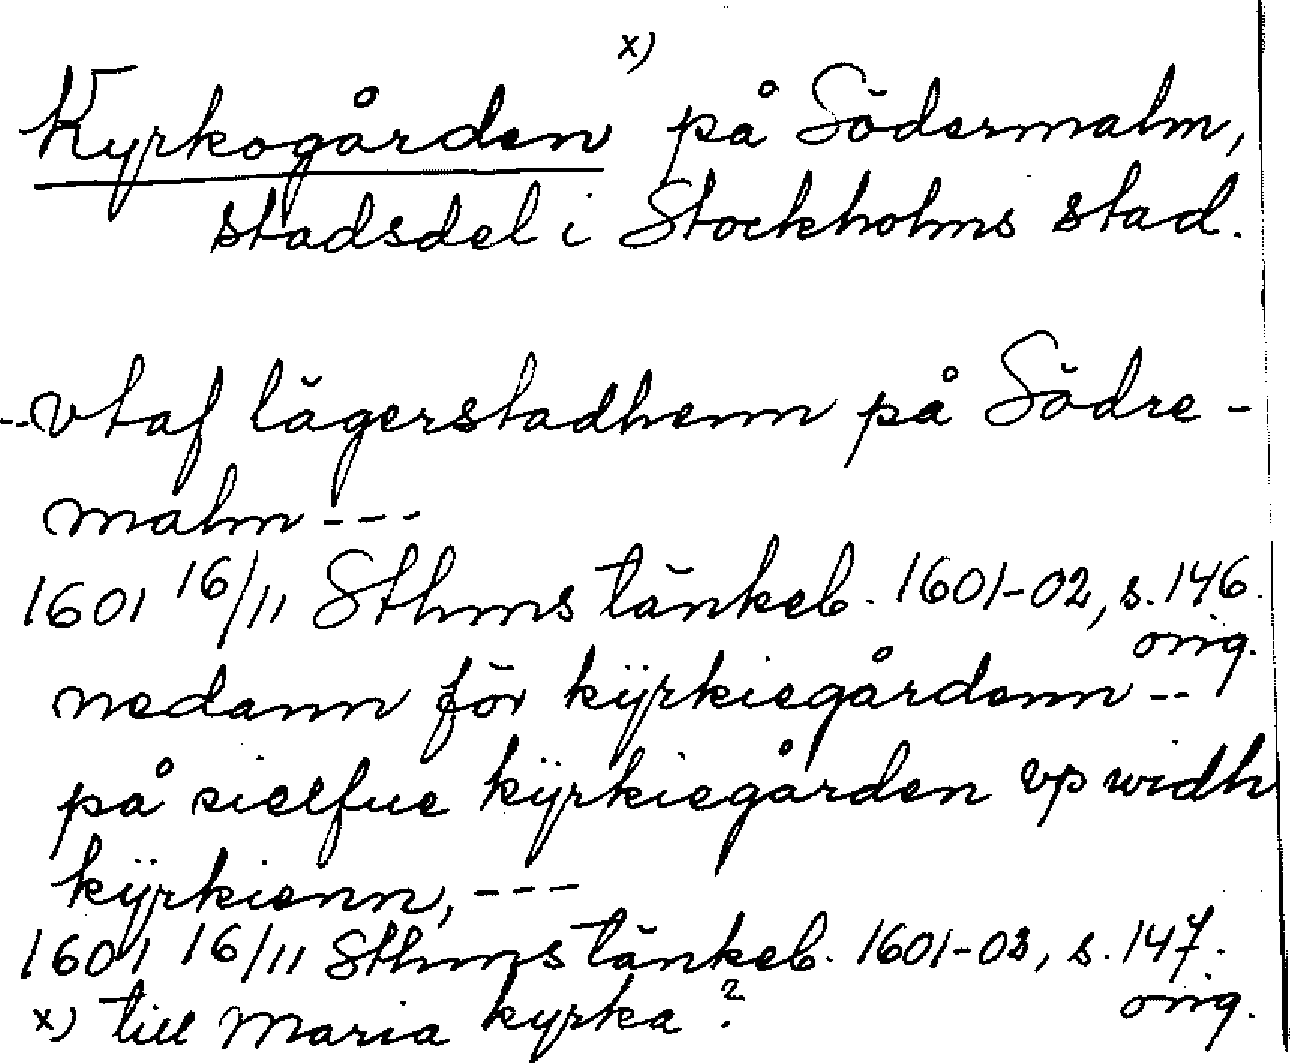 Kyrkogården x) på Södermalm,
stadsdel i Stockholms stad.
--vtaf lägerstadhenn på Södre-
malm---
1601 16/11 Sthms tänkeb. 1601-02, s. 146.
orig.
nedann för kÿrkiegårdenn--
på sielfue kÿrkiegården vp widh
kÿrkienn,---
1601 16/11 Sthms tänkeb. 1601-02, s. 147.
orig.
x) till Maria kyrka?